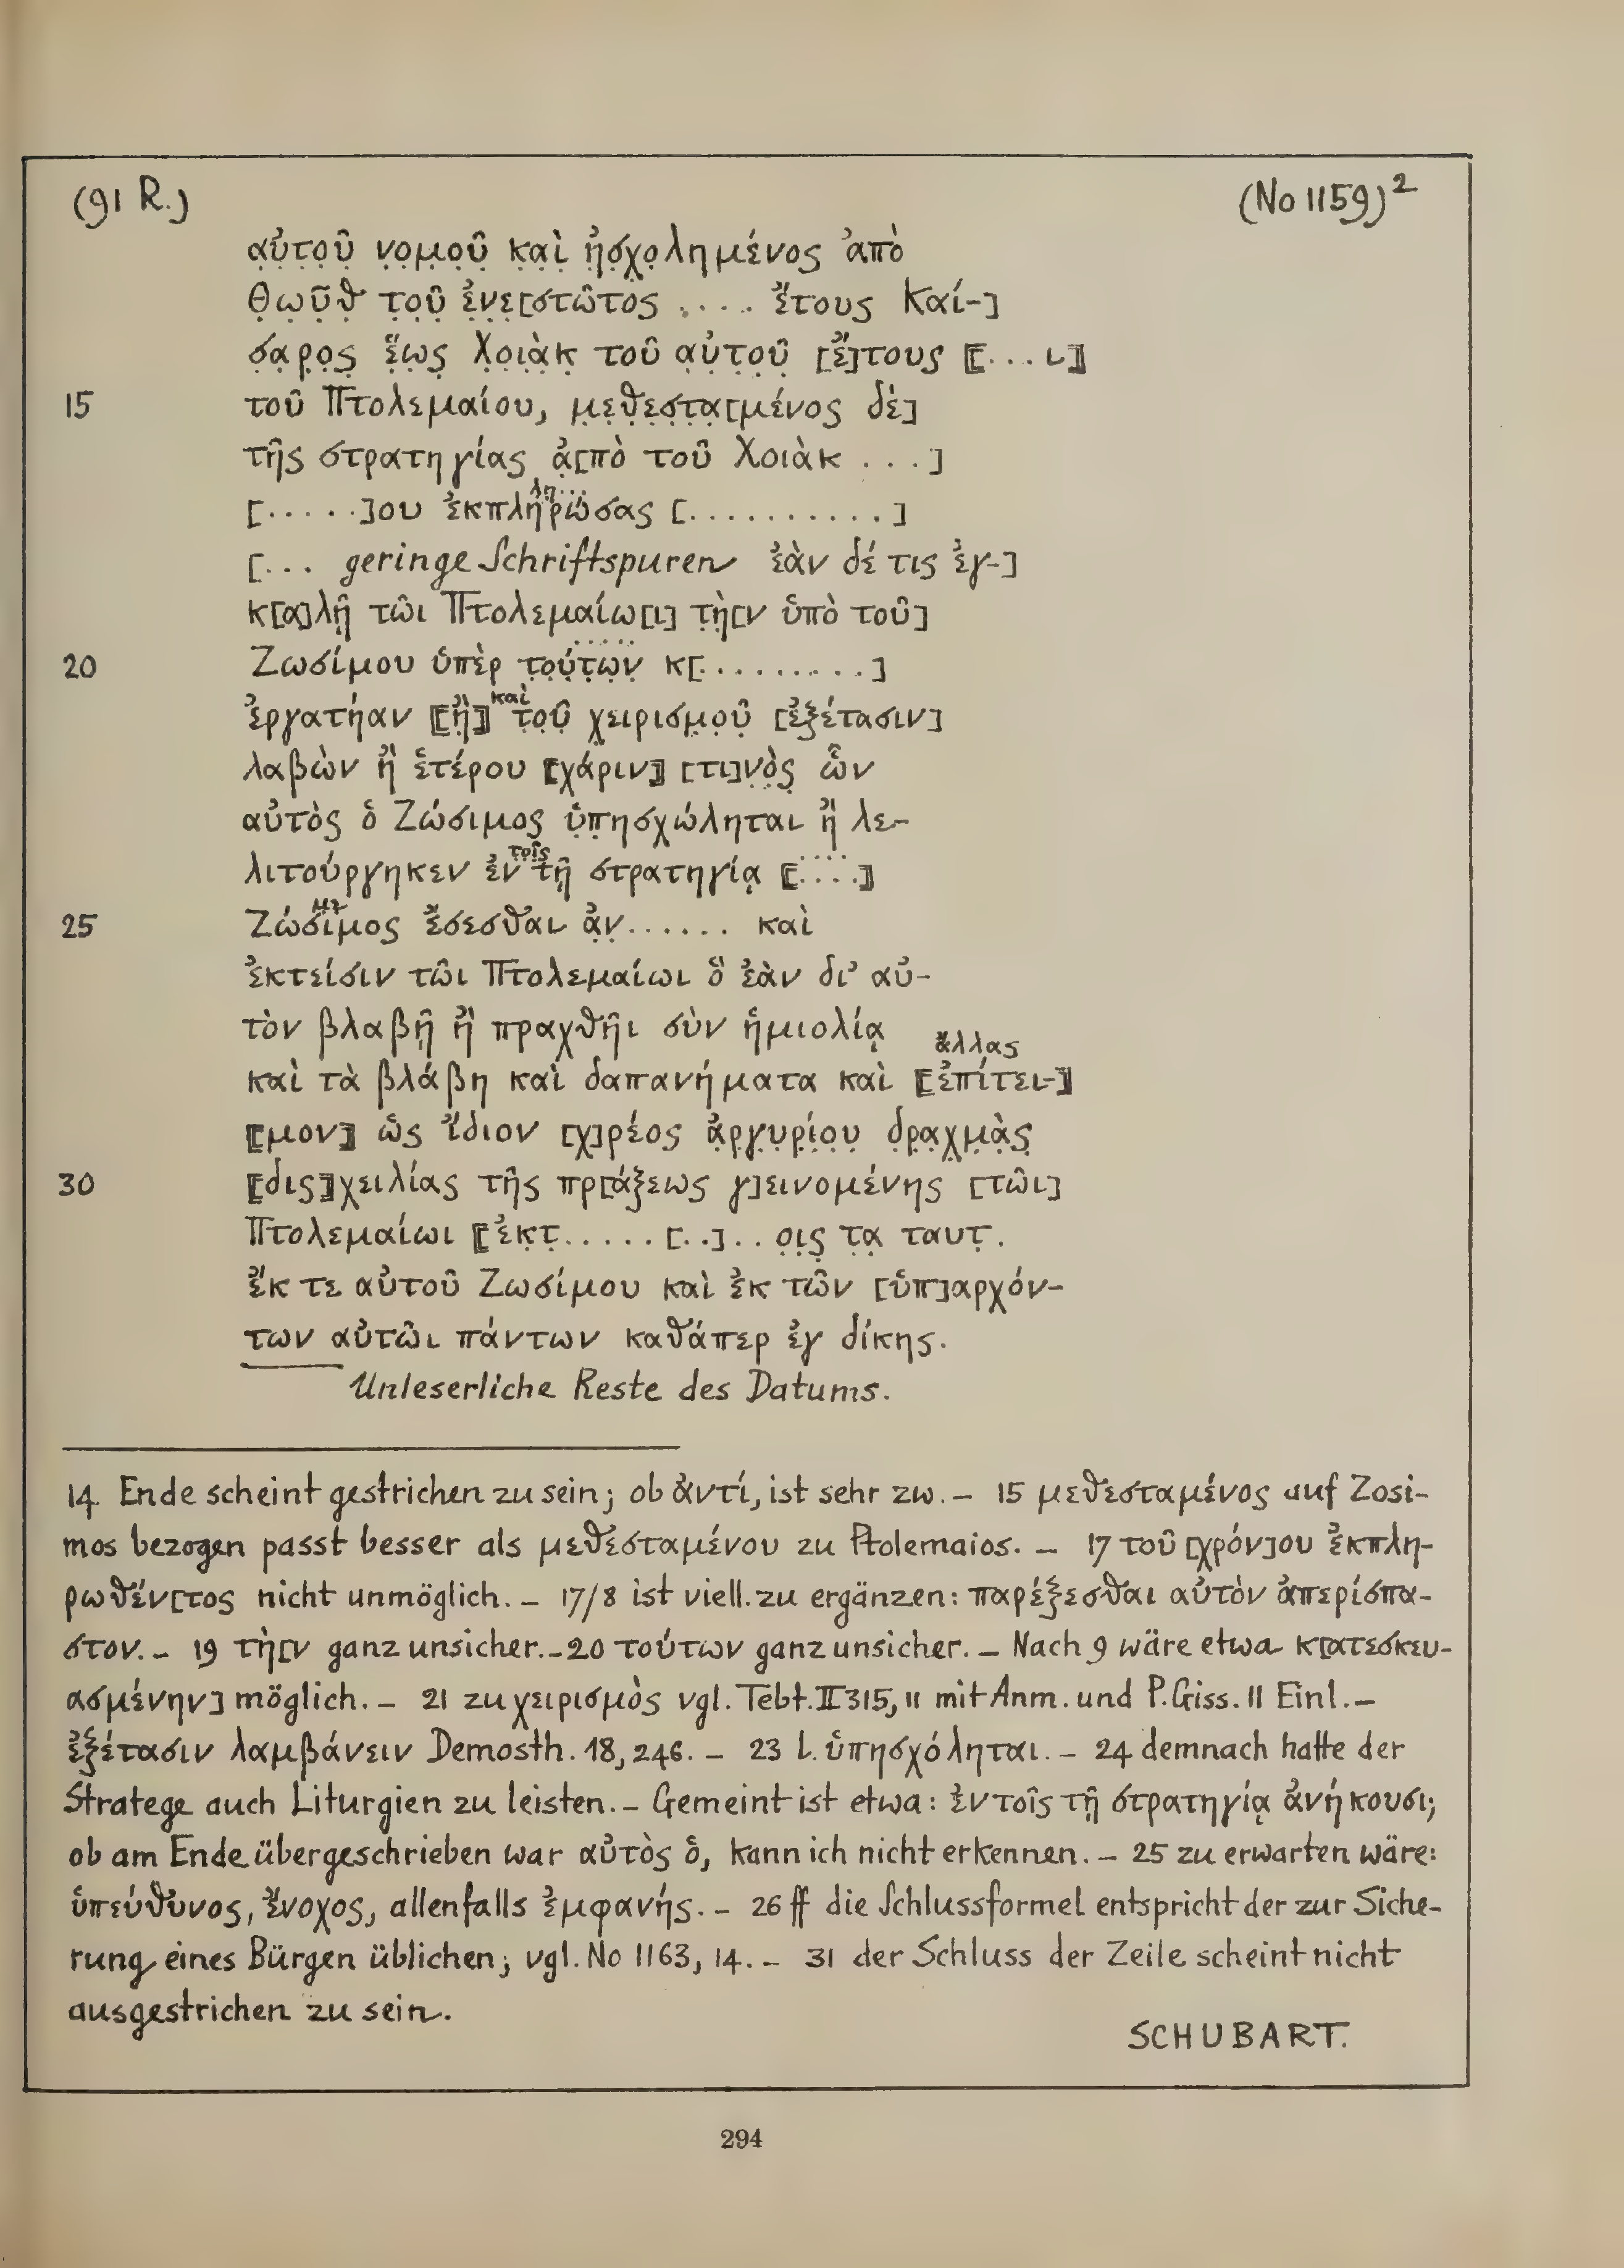 (91 R.) (No 1159)²
α̣ὐ̣τ̣ο̣ῦ̣ ν̣ο̣μ̣ο̣ῦ̣ κ̣α̣ὶ̣ ἠ̣σ̣χ̣ο̣λημένος ἀπὸ
Θ̣ω̣ῦ̣θ̣ τ̣ο̣ῦ̣ ἐ̣ν̣ε̣[στῶτος .... ἔτους Καί-]
σ̣α̣ρ̣ο̣ς̣ ἕ̣ω̣ς̣ Χ̣ο̣ι̣ὰ̣κ̣ τοῦ α̣ὐ̣τ̣ο̣ῦ̣ [ἔ]τους ⟦...ι⟧
15 τοῦ Πτολεμαίου, μ̣ε̣θ̣ε̣σ̣τ̣α̣[μένος δὲ]
τῆς στρατηγίας ἀ̣[πὸ τοῦ Χοιὰκ ...]
λη...
[.....]ου ἐκπληρώσας [..........]
[... geringe Schriftspuren ἐὰν δέ τις ἐγ-]
κ[α]λῇ τῶι Πτολεμαίω[ι] τ̣ὴ̣[ν ὑπὸ τοῦ]
20 Ζωσίμου ὑπὲρ τ̣ο̣ύ̣τ̣ω̣ν̣ κ[.........]
καὶ
ἐργατήαν ⟦ἢ̣⟧ τ̣ο̣ῦ̣ χ̣ειρισμ̣ο̣ῦ̣ [ἐξέτασιν]
λαβὼν ἢ ἑτέρου ⟦χάριν⟧ [τι]ν̣ὸ̣ς̣ ὧν
αὐτὸς ὁ Ζώσιμος ὑ̣π̣ησχώληται ἢ λε-
τοῖς
λιτούργηκεν ἐν τῇ στρατηγίᾳ ⟦....⟧
25 Ζώσιμος ἔσεσθαι ἀ̣ν̣...... καὶ
ἐκτείσιν τῶι Πτολεμαίωι ὃ ἐὰν δι’ αὐ-
τὸν βλαβῇ ἢ πραχθῆι σὺν ἡμιολίᾳ
ἄλλας
καὶ τὰ βλάβη καὶ δαπανήματα καὶ ⟦ἐπίτει-⟧
⟦μον⟧ ὡς ἴδιον [χ]ρέος ἀ̣ρ̣γ̣υ̣ρ̣ί̣ο̣υ̣ δ̣ρ̣α̣χ̣μ̣ὰ̣ς̣
30 ⟦δισ⟧χειλίας τῆς πρ[άξεως γ]εινομένης [τῶι]
Πτολεμαίωι ⟦ἐκ̣τ̣.....[..]..ο̣ι̣ς̣ τ̣α̣ ταυτ̣.
ἔκ τε αὐτοῦ Ζωσίμου καὶ ἐκ τῶν [ὑπ]αρχόν-
των αὐτῶι πάντων καθάπερ ἐγ δίκης.
Unleserliche Reste des Datums.
14. Ende scheint gestrichen zu sein; ob ἀντί, ist sehr zw. – 15 μεθεσταμένος auf Zosi-
mos bezogen passt besser als μεθεσταμένου zu Ptolemaios. – 17 τοῦ [χρόν]ου ἐκπλη-
ρωθέν[τος nicht unmöglich. – 17/8 ist viell. zu ergänzen: παρέξεσθαι αὐτὸν ἀπερίσπα-
στον. – 19 τὴ[ν ganz unsicher. – 20 τούτων ganz unsicher. – Nach 9 wäre etwa κ[ατεσκευ-
ασμένην] möglich. – 21 zu χειρισμὸς vgl. Tebt. II 315, 11 mit Anm. und P. Giss. 11 Einl. –
ἐξέτασιν λαμβάνειν Demosth. 18, 246. – 23 l. ὑπησχόληται. – 24 demnach hatte der
Stratege auch Liturgien zu leisten. – Gemeint ist etwa: ἐν τοῖς τῇ στρατηγίᾳ ἀνήκουσι;
ob am Ende übergeschrieben war αὐτὸς ὁ, kann ich nicht erkennen. – 25 zu erwarten wäre:
ὑπεύθυνος, ἔνοχος, allenfalls ἐμφανής. – 26 ff die Schlussformel entspricht der zur Siche-
rung eines Bürgen üblichen; vgl. No 1163, 14. – 31 der Schluss der Zeile scheint nicht
ausgestrichen zu sein.
SCHUBART.
294